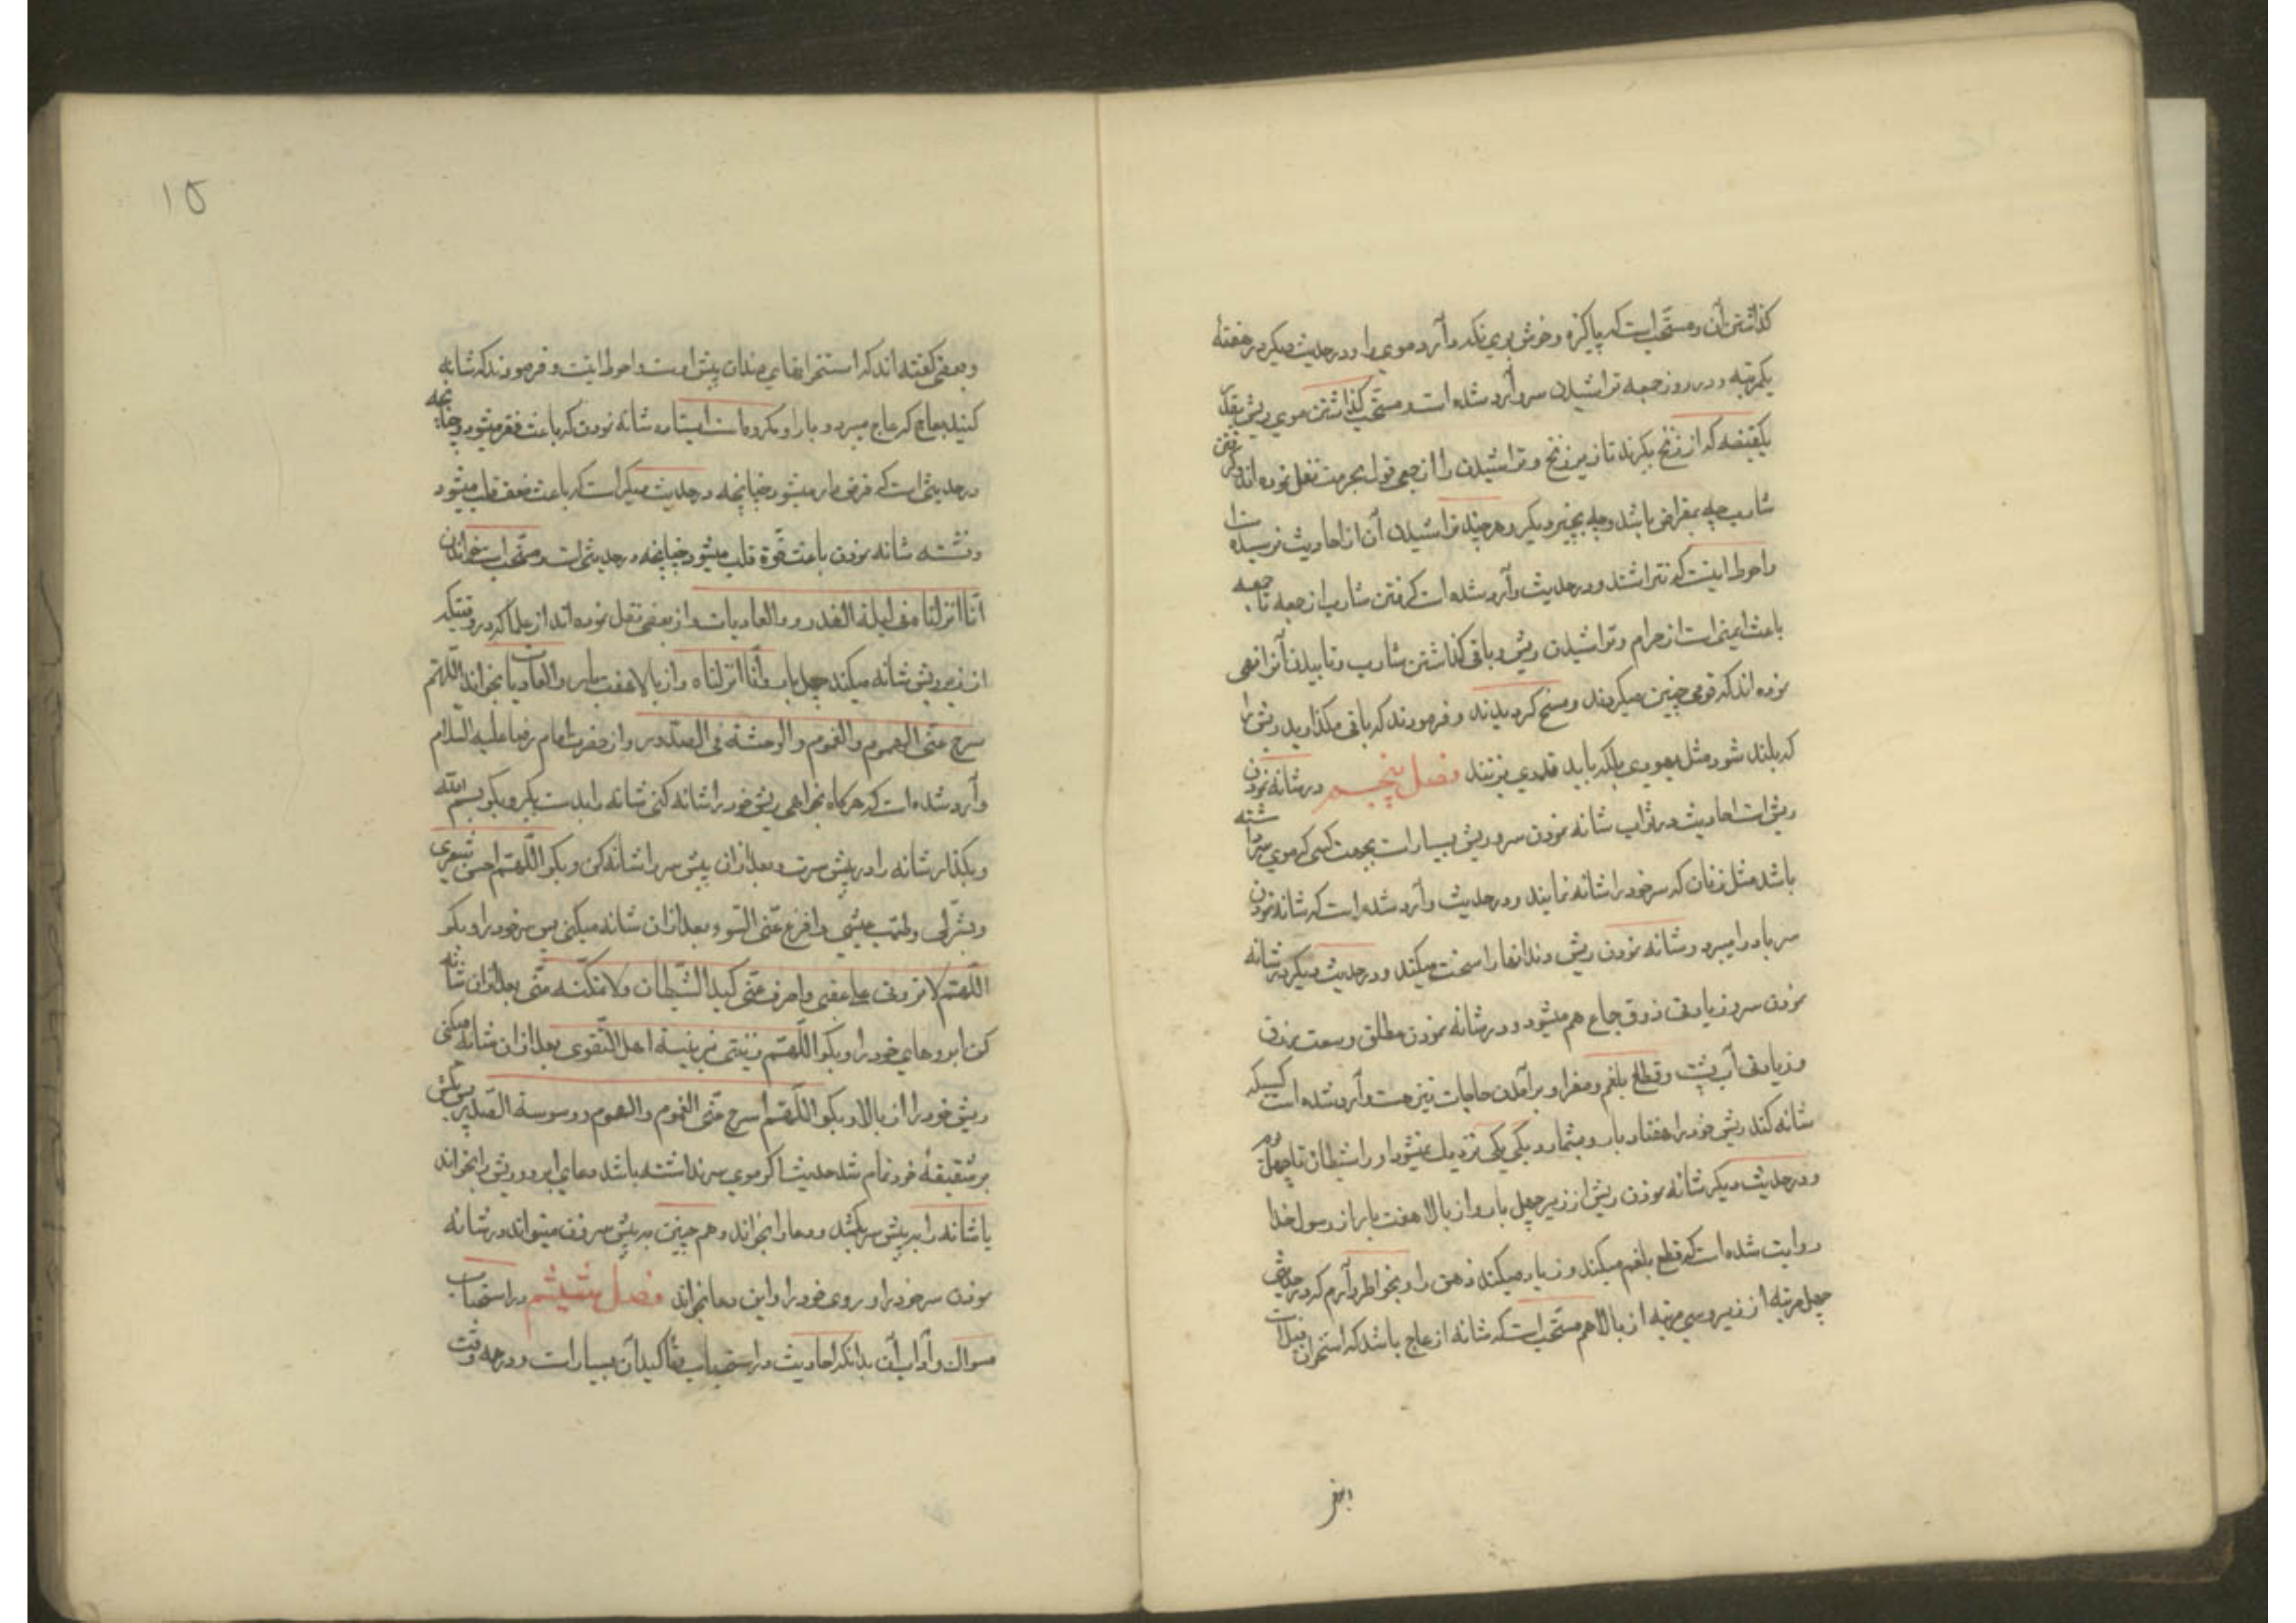 گذاشتن آن و مستحب است که پاکیزه و خوش بوی نگه دارد موی را و در حدیث دیگر در هفتهٔ
یکمرتبه و در روز جمعه تراشیدن سر وارد شده است و مستحب گذاشتن موی ریش بقدر
یکقبضه که از زنخ بگیرند تا زیر زنخ و تراشیدن را از جمعی قول بحرمت نقل نموده اند و گرفتن
شارب چه بمقراض باشد و چه بچیز دیگر و هر چند تراشیدن آن از احادیث نرسیده است
و احوط اینست که نتراشند و در حدیث وارد شده است گرفتن شارب از جمعه تا جمعه
باعث ایمنی است از حرام و تراشیدن ریش و باقی گذاشتن شارب و تابیدن آنرا نهی
نموده اند که قومی چنین میکردند و مسخ گردیدند و فرمودند که باقی مگذارید ریش را
که بلند شود مثل یهودی بلکه باید قدری بزنند فصل پنجم در شانه نمودن
ریش است احادیث در ثواب شانه نمودن سر و ریش بسیار است بجهت کسی که موی سر داشته
باشد مثل زنان که سر خود را شانه نمایند و در حدیث وارد شده است که شانه نمودن
سر باد را میبرد و شانه نمودن ریش دندانها را سخت میکند و در حدیث دیگر در شانه
نمودن سر و زیادتی ذوق جماع هم میشود و در شانه نمودن مطلق وسعت رزق
و زیادتی آب پشت و قطع بلغم و صفرا و برآمدن حاجات نیز هست وارد شده است کسیکه
شانه کند ریش خود را هفتاد بار و بشمارد یکی یکی نزدیک نمیشود او را شیطان تا چهل روز
و در حدیث دیگر شانه نمودن ریش از زیر چهل بار و از بالا هفت بار از رسول خدا
روایت شده است که قطع بلغم میکند و زیاد میکند ذهن را و بخواطر دارم که در حدیث
چهل مرتبه از زیر و سی مرتبه از بالا هم مستحب است که شانه از عاج باشد که استخوان فیل است
و بعضی گفته اند که استخوانهای دندان پیش اوست و احوط اینست و فرمودند که شانه
کنید بعاج که عاج میبرد و بار او مکروهست ایستاده شانه نمودن که باعث فقر میشود و چنانچه
در حدیثی است که قرض دار میشود چنانچه در حدیث دیگر است که باعث ضعف قلب میشود
و نشسته شانه نمودن باعث قوة قلب میشود چنانچه در حدیثی است و مستحب است خواندن
انّا انزلناه فی لیلة القدر و والعادیات و از بعضی نقل نموده اند از علما که در وقتیکه
از زیر ریش شانه میکند چهل بار و انّا انزلناه و از بالا هفت بار والعادیات بخواند اللّهم
سرح عنی الهموم و الغموم و الوحشة فی الصّدور و از حضرت امام رضا علیه السلام
وارد شده است که هر گاه بخواهی ریش خود را شانه کنی شانه را بدست بگیر و بگو بسم الله
و بگذار شانه را در پیش سرت و بعد از آن پیش سر را شانه کن و بگو اللّهم احسن شعری
و بشری و طیّب عیشی وافرغ عنی السّوء بعد از آن شانه میکنی پس سر خود را و بگو
اللّهم لا تردنی علی عقبی و اصرف عنّی کید الشّیطان ولا تمکّنه منّی بعد از آن شانه
کن ابروهای خود را و بگو اللّهم زیّنی بزینة اهل التّقوی بعد از آن شانه میکنی
ریش خود را از بالا و بگو اللّهم سرح عنّی الغموم و الهموم و وسوسة الصّدر پس بکش
بر شقیقهٔ خود تمام شد حدیث اگر موی سر نداشته باشد دعای ابرو و ریش را بخواند
یا شانه را بر پیش سر بکشد و دعا را بخواند و هم چنین بر پیش سر زدن میتواند در شانه
نمودن سر خود را و روی خود را و این دعا بخواند فصل ششم در استحباب
مسواک و آداب آن بدانکه احادیث در استحباب و تأکید آن بسیار است و در چه وقت
۱۵